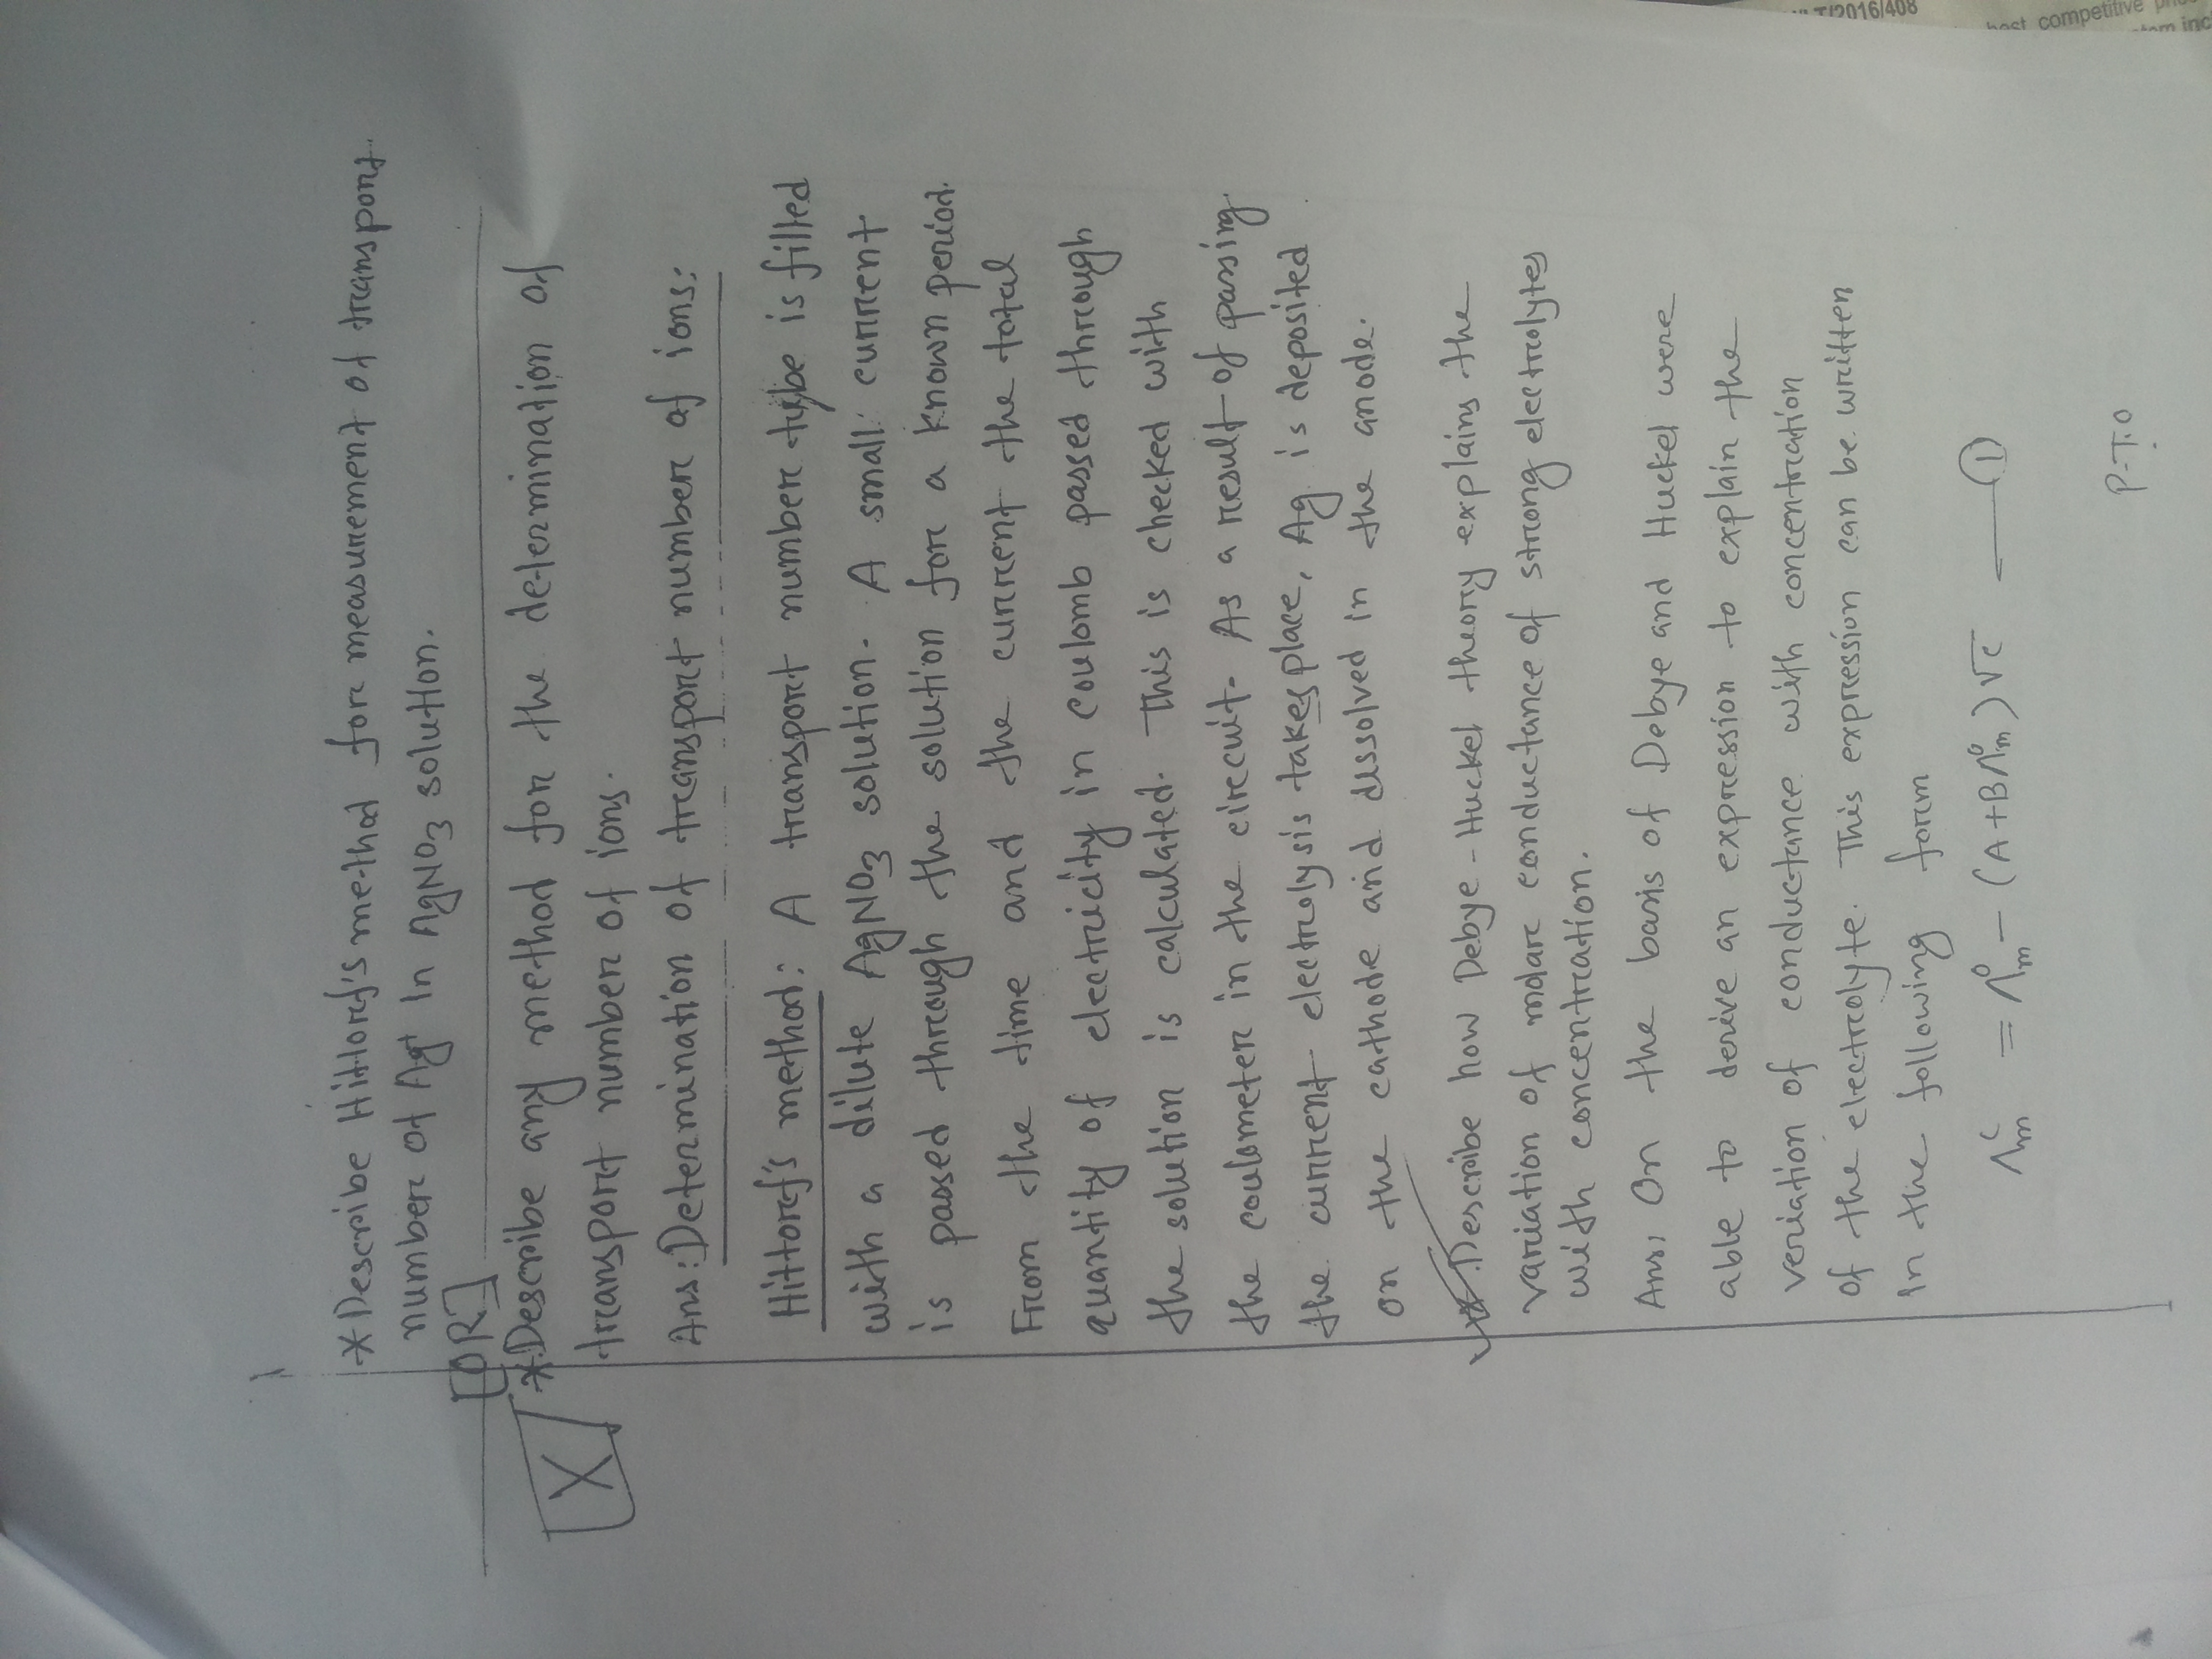 T/2016/408
best competitive
* Describe Hittorf's method for measurement of transport
number of Ag+ in AgNO3 solution.
[OR]
X
* Describe any method for the determination of
transport number of ions.
Ans: Determination of transport number of ions:
Hittorf's method: A transport number tube is filled
with a dilute AgNO3 solution. A small current
is passed through the solution for a known period.
From the time and the current the total
quantity of electricity in coulomb passed through
the solution is calculated. This is checked with
the coulometer in the circuit. As a result of passing
the current electrolysis takes place, Ag is deposited
on the cathode and dissolved in the anode.
* Describe how Debye-Huckel theory explains the
variation of molar conductance of strong electrolytes
with concentration.
Ans: On the basis of Debye and Huckel were
able to derive an expression to explain the
veriation of conductance with concentration
of the electrolyte. This expression can be written
in the following form
Λᶜm = Λ⁰m − (A+BΛ⁰m)√c —— ①
P.T.O